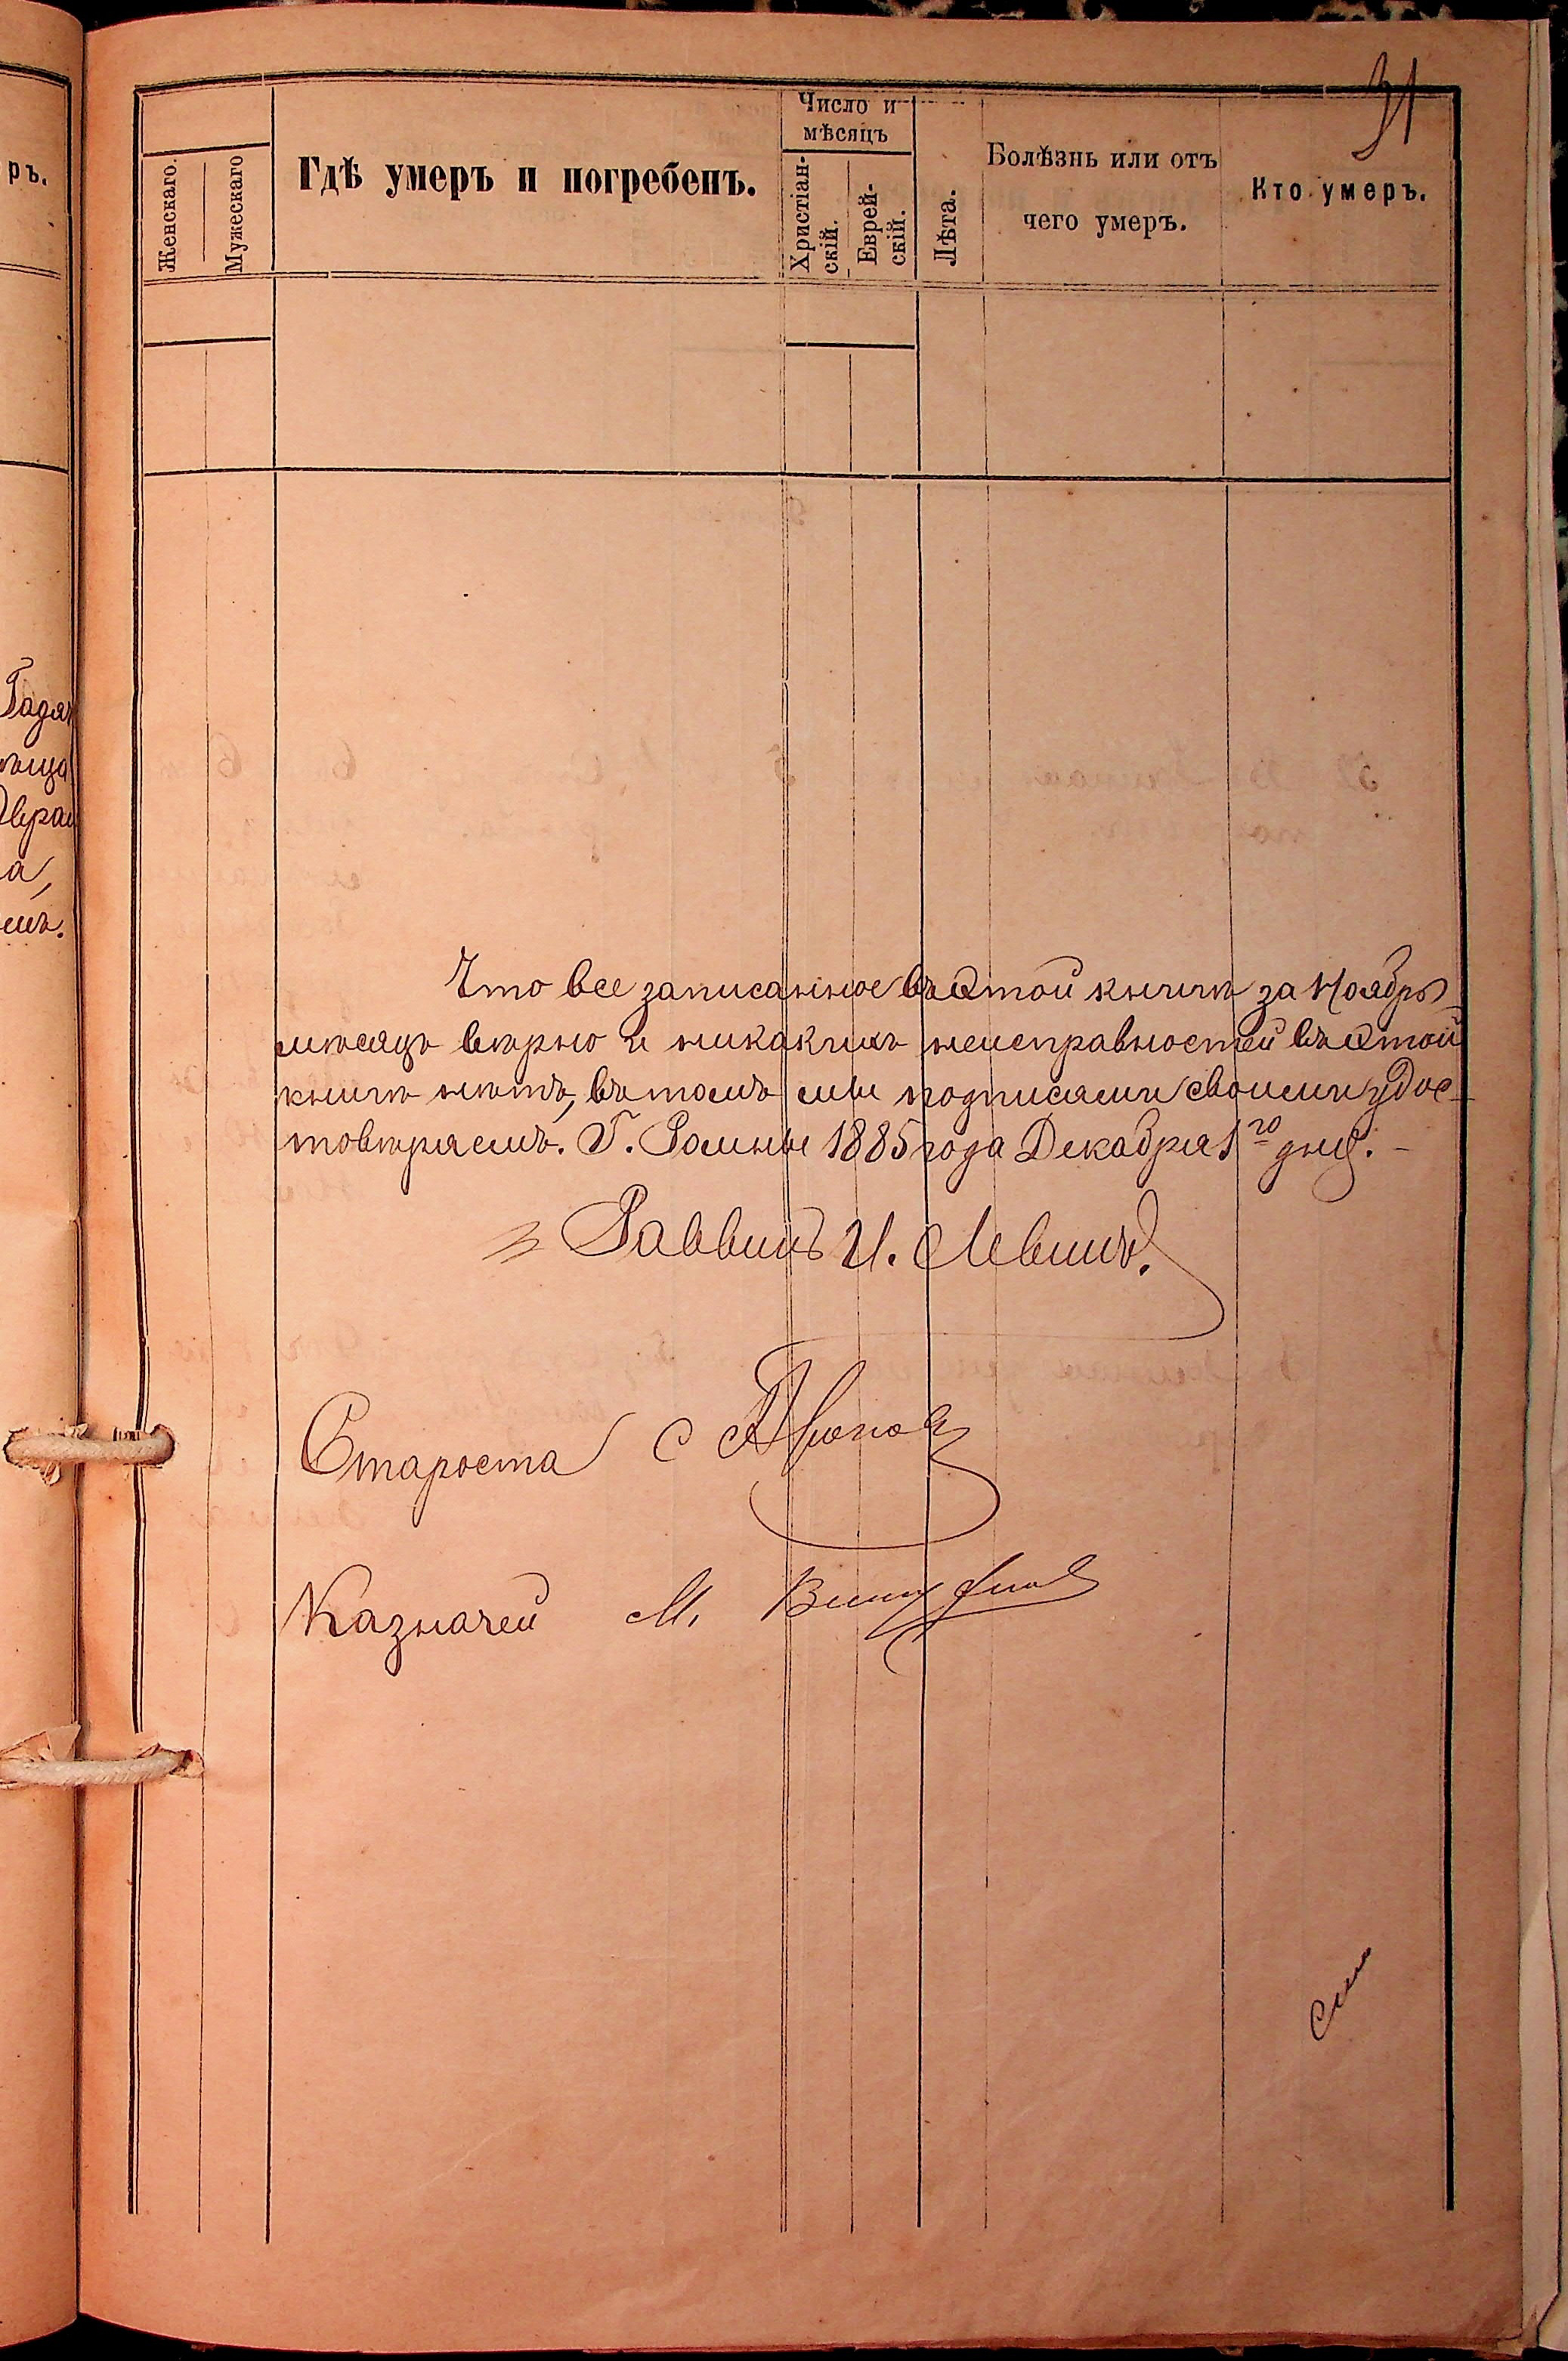 31
Число и
мѣсяцъ
Женскаго.
Мужескаго
Гдѣ умеръ и погребенъ.
Христіан-
скій.
Еврей-
скій.
Лѣта.
Болѣзнь или отъ
чего умеръ.
Кто умеръ.
ръ.
Что все записанное въ этой книгѣ за Ноябрь
мѣсяцъ вѣрно и никакихъ неисправностей въ этой
книгѣ нѣтъ, въ томъ мы подписями своими удос-
товѣряемъ. Г. Ромны 1885 года Декабря 1го дня. -
Раввинъ И. Левинъ.
Староста С
Казначей М.